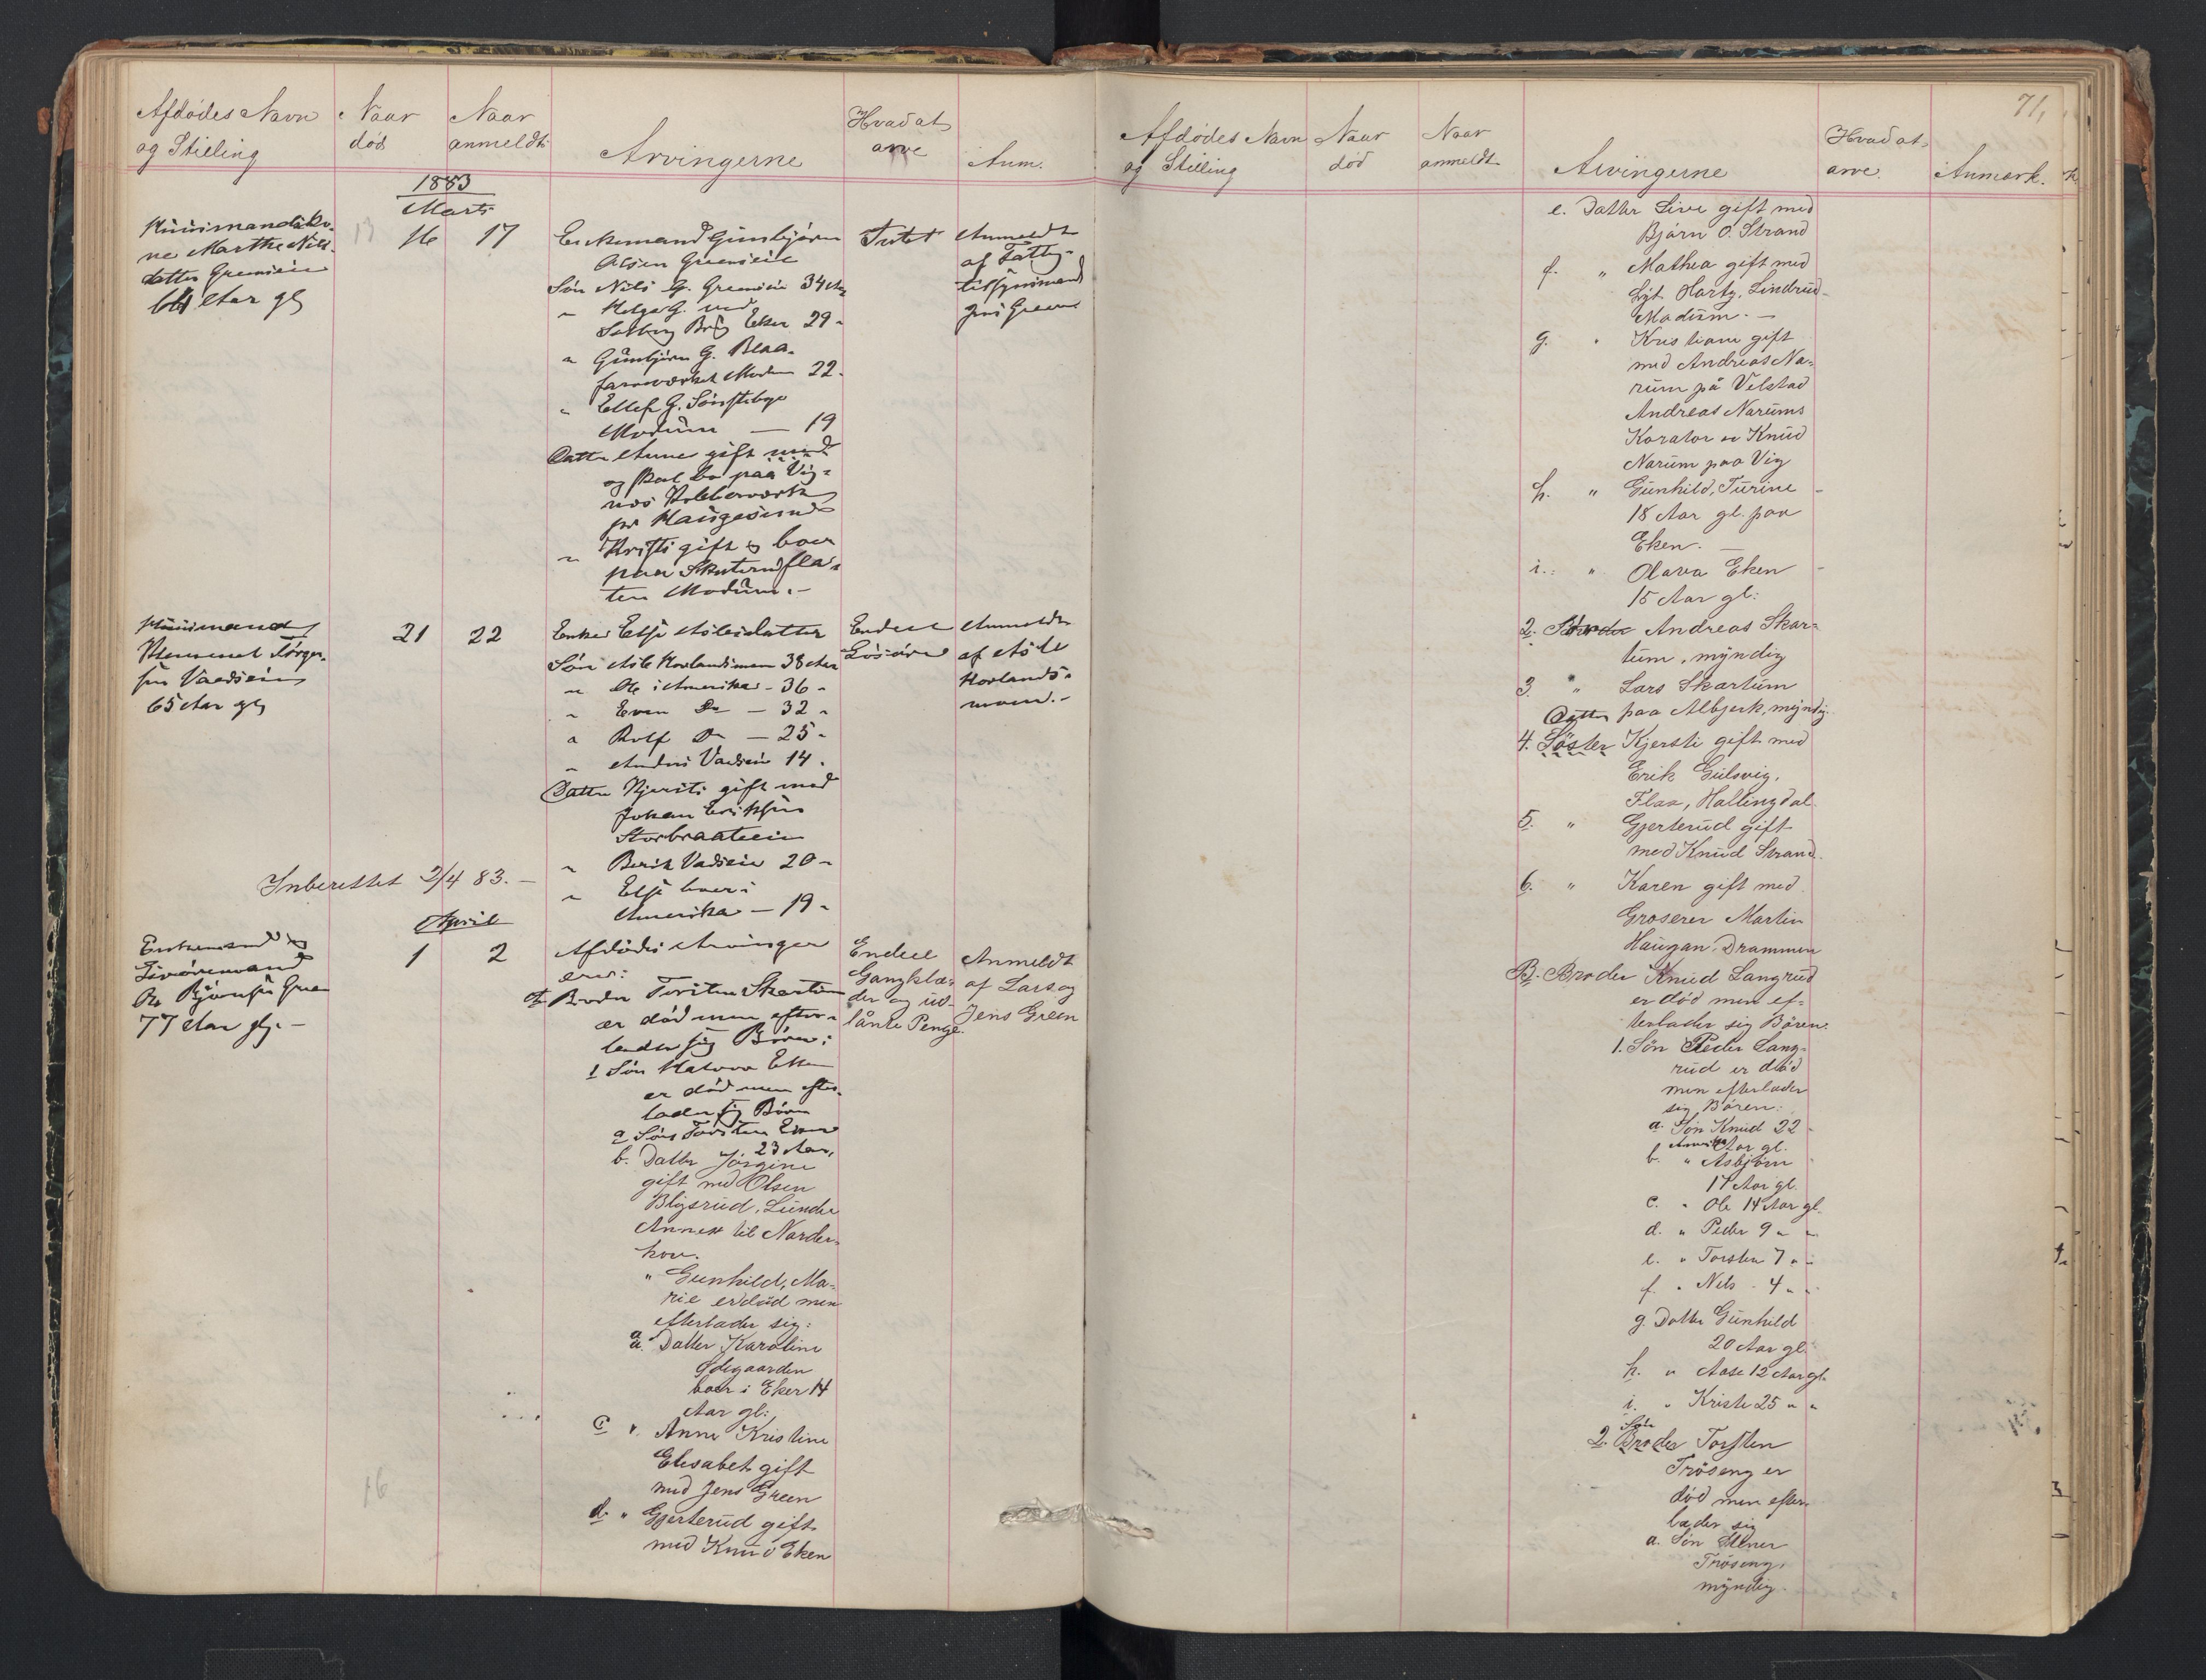 Afdødes Navn
og Stilling
Naar
død
Naar
anmeldt
Arvingerne
Hvad at
arve
Anm.
1883
Marts
Huusmandsko-
ne Marthe Niels-
datter Greenseie
64 Aar gl
16
17
Enkemand Gunbjørn
Olsen Greenseie
Søn Nils G. Greenseie 34 Aar
" Helge G. ved
Brug Eker 29 "
" Gunbjørn G. Blaa-
farveværket Modum 22 "
" Ellef G. Sønsteby
Modum — 19
Datter Anne gift
og skal bo paa Vig-
næs Kobberværk
pr Haugesund
" Kristi gift og boer
paa Skuterudfla-
ten Modum. —
Intet
Anmeldt
af Fattig-
tilsynsmand
Jens Green
Huusmand
Klemmet Torger-
sen Vadseie
65 Aar gl
21
22
Enke Elsi Asledatter
Søn Asle Hovlandsmoen 38 Aar
" Ole i Amerika - 36 "
" Even Do — 32 "
" Rolf Do — 25 "
" Anders Vadseie 14 "
Datter Kjersti gift med
Johan Eriksen
Storbraateeie
" Berit Vadseie 20 "
" Elsi boer i
Amerika — 19 "
Endeel
Løsøre
Anmeldt
af Asle
Hovlands-
moen. —
Inberettet 2/4 83. —
April
Enkemand og
Livøremand
Ole Bjørnsen Green
77 Aar gl. —
1
2
Afdødes Arvinger
ere:
A. Broder Torsten Skartum
er død men efter-
lader sig Børn:
1 Søn Halvor Eken
er død men efter-
lader sig Børn
a Søn Torsten Eken
23 Aar,
b. Datter Jørgine
gift med Olsen
Blysrud, Lunder
Annex til Norder-
hov.
" Gunhild, Ma-
rie er død men
efterlader sig:
a. Datter Karoline
Ødegaarden
boer i Eker 14
Aar gl:
c ". Anne Kristine
Elisabet gift
med Jens Green
d. " Gjerterud gift
med Knud Eken
Endeel
Gangklæ-
der og ud-
lånte Penge.
Anmeldt
af Lars og
Jens Green
71,
Afdødes Navn
og Stilling
Naar
død
Naar
anmeldt
Arvingerne
Hvad at
arve.
Anmærk.
e. Datter Live gift med
Bjørn O. Strand
f. " Mathea gift med
Lindrud
Modum. —
g. " Kristiane gift
med Andreas Na-
rum på Velstad
Andreas Narums
Korator er Knud
Narum paa Vig
h. " Gunhild, Turine
18 Aar gl. paa
Eken. —
i. : " Olava Eken
15 Aar gl:
2. Broder Andreas Skar-
tum, myndig
3. " Lars Skartum
paa Albjerk, myndig.
Datter
4. Søster Kjersti gift med
Erik Gulsvig,
Flaa, Hallingdal.
5. " Gjerterud gift
med Knud Strand.
6. " Karen gift med
Groserer Martin
Haugan, Drammen
B. Broder Knud Langrud
er død men ef-
terlader sig Børen.
1. Søn Peder Lang-
rud er død
men efterlader
sig Børen:
a. Søn Knud 22
Amerika Aar gl.
b. " Asbjørn
17 Aar gl.
c. " Ole 14 Aar gl.
d. " Peder 9 " "
e. " Torsten 7 " "
f. " Nils - 4 " "
g. Datter Gunhild
20 Aar gl.
h. " Aase 12 Aar gl.
i. " Kriste 25 " "
Søn
2. Broder Torsten
Trøseng er
død men efter-
lader sig
a. Søn Stener
Trøseng,
myndig.